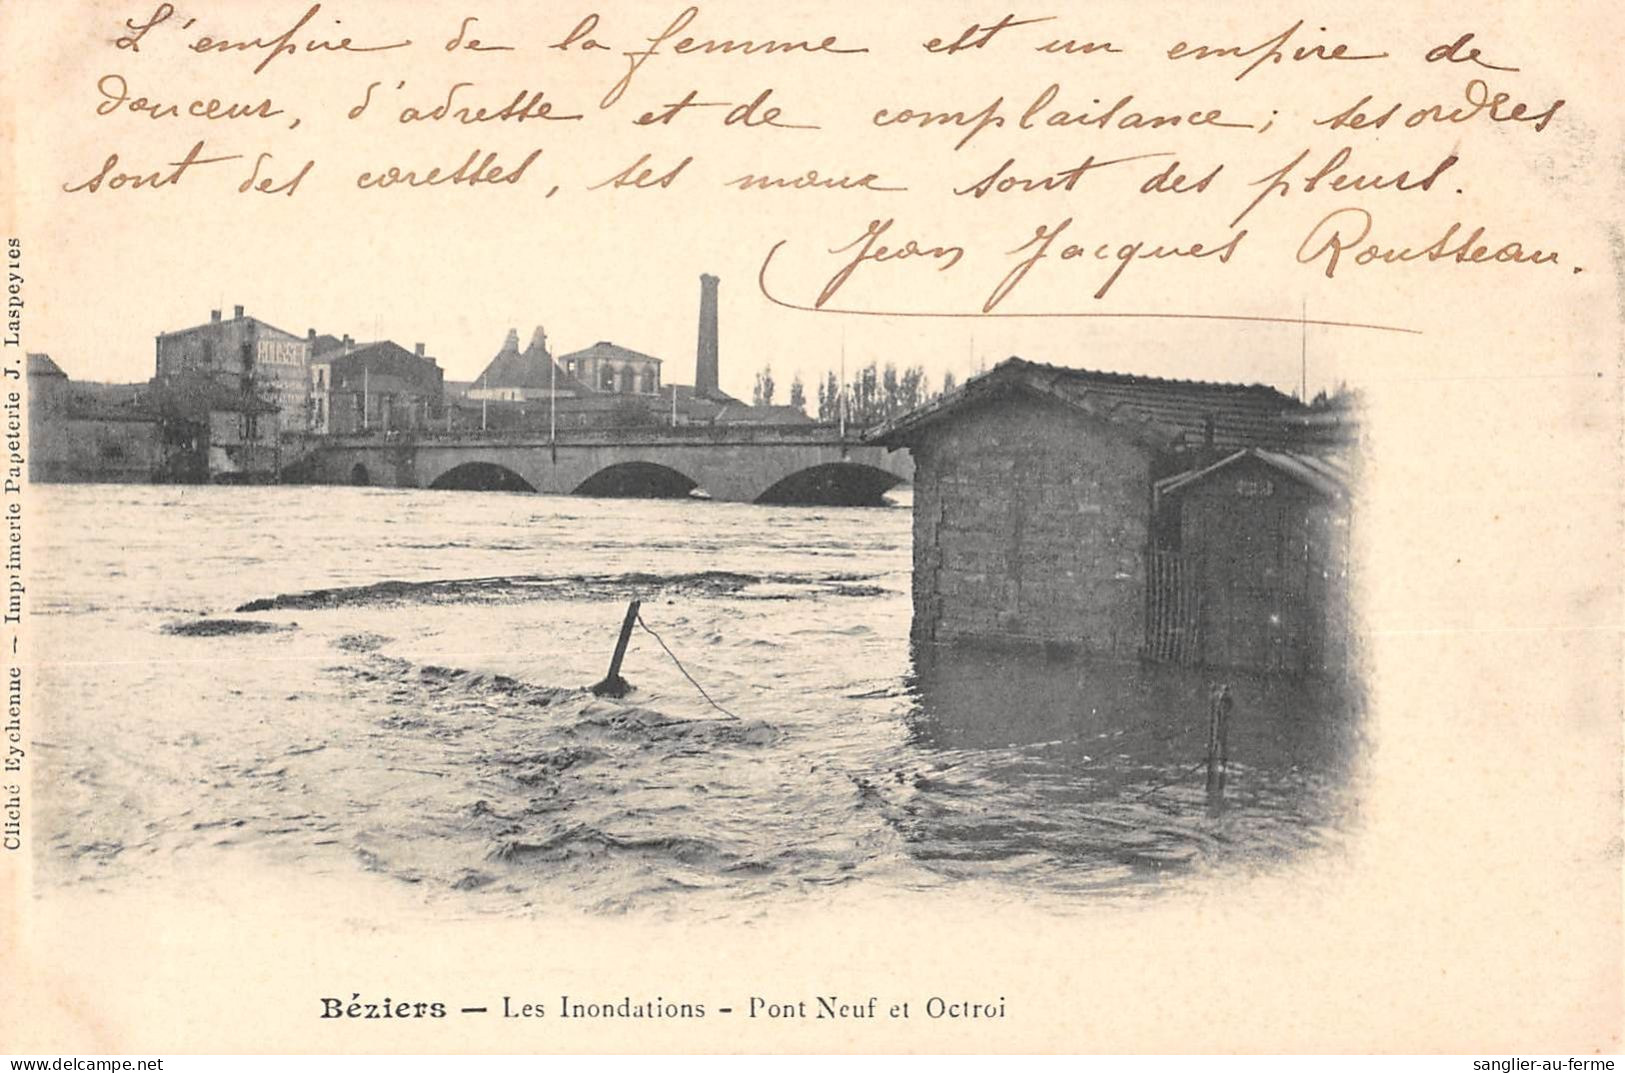 L'empire de la femme est un empire de
douceur, d'adresse et de complaisance; ses ordres
sont des caresses, ses maux sont des pleurs.
Jean Jacques Rousseau.
Cliché Eychenne — Imprimerie Papeterie J. Laspeyres
Béziers — Les Inondations - Pont Neuf et Octroi
delcampe.net
sanglier-au-ferme